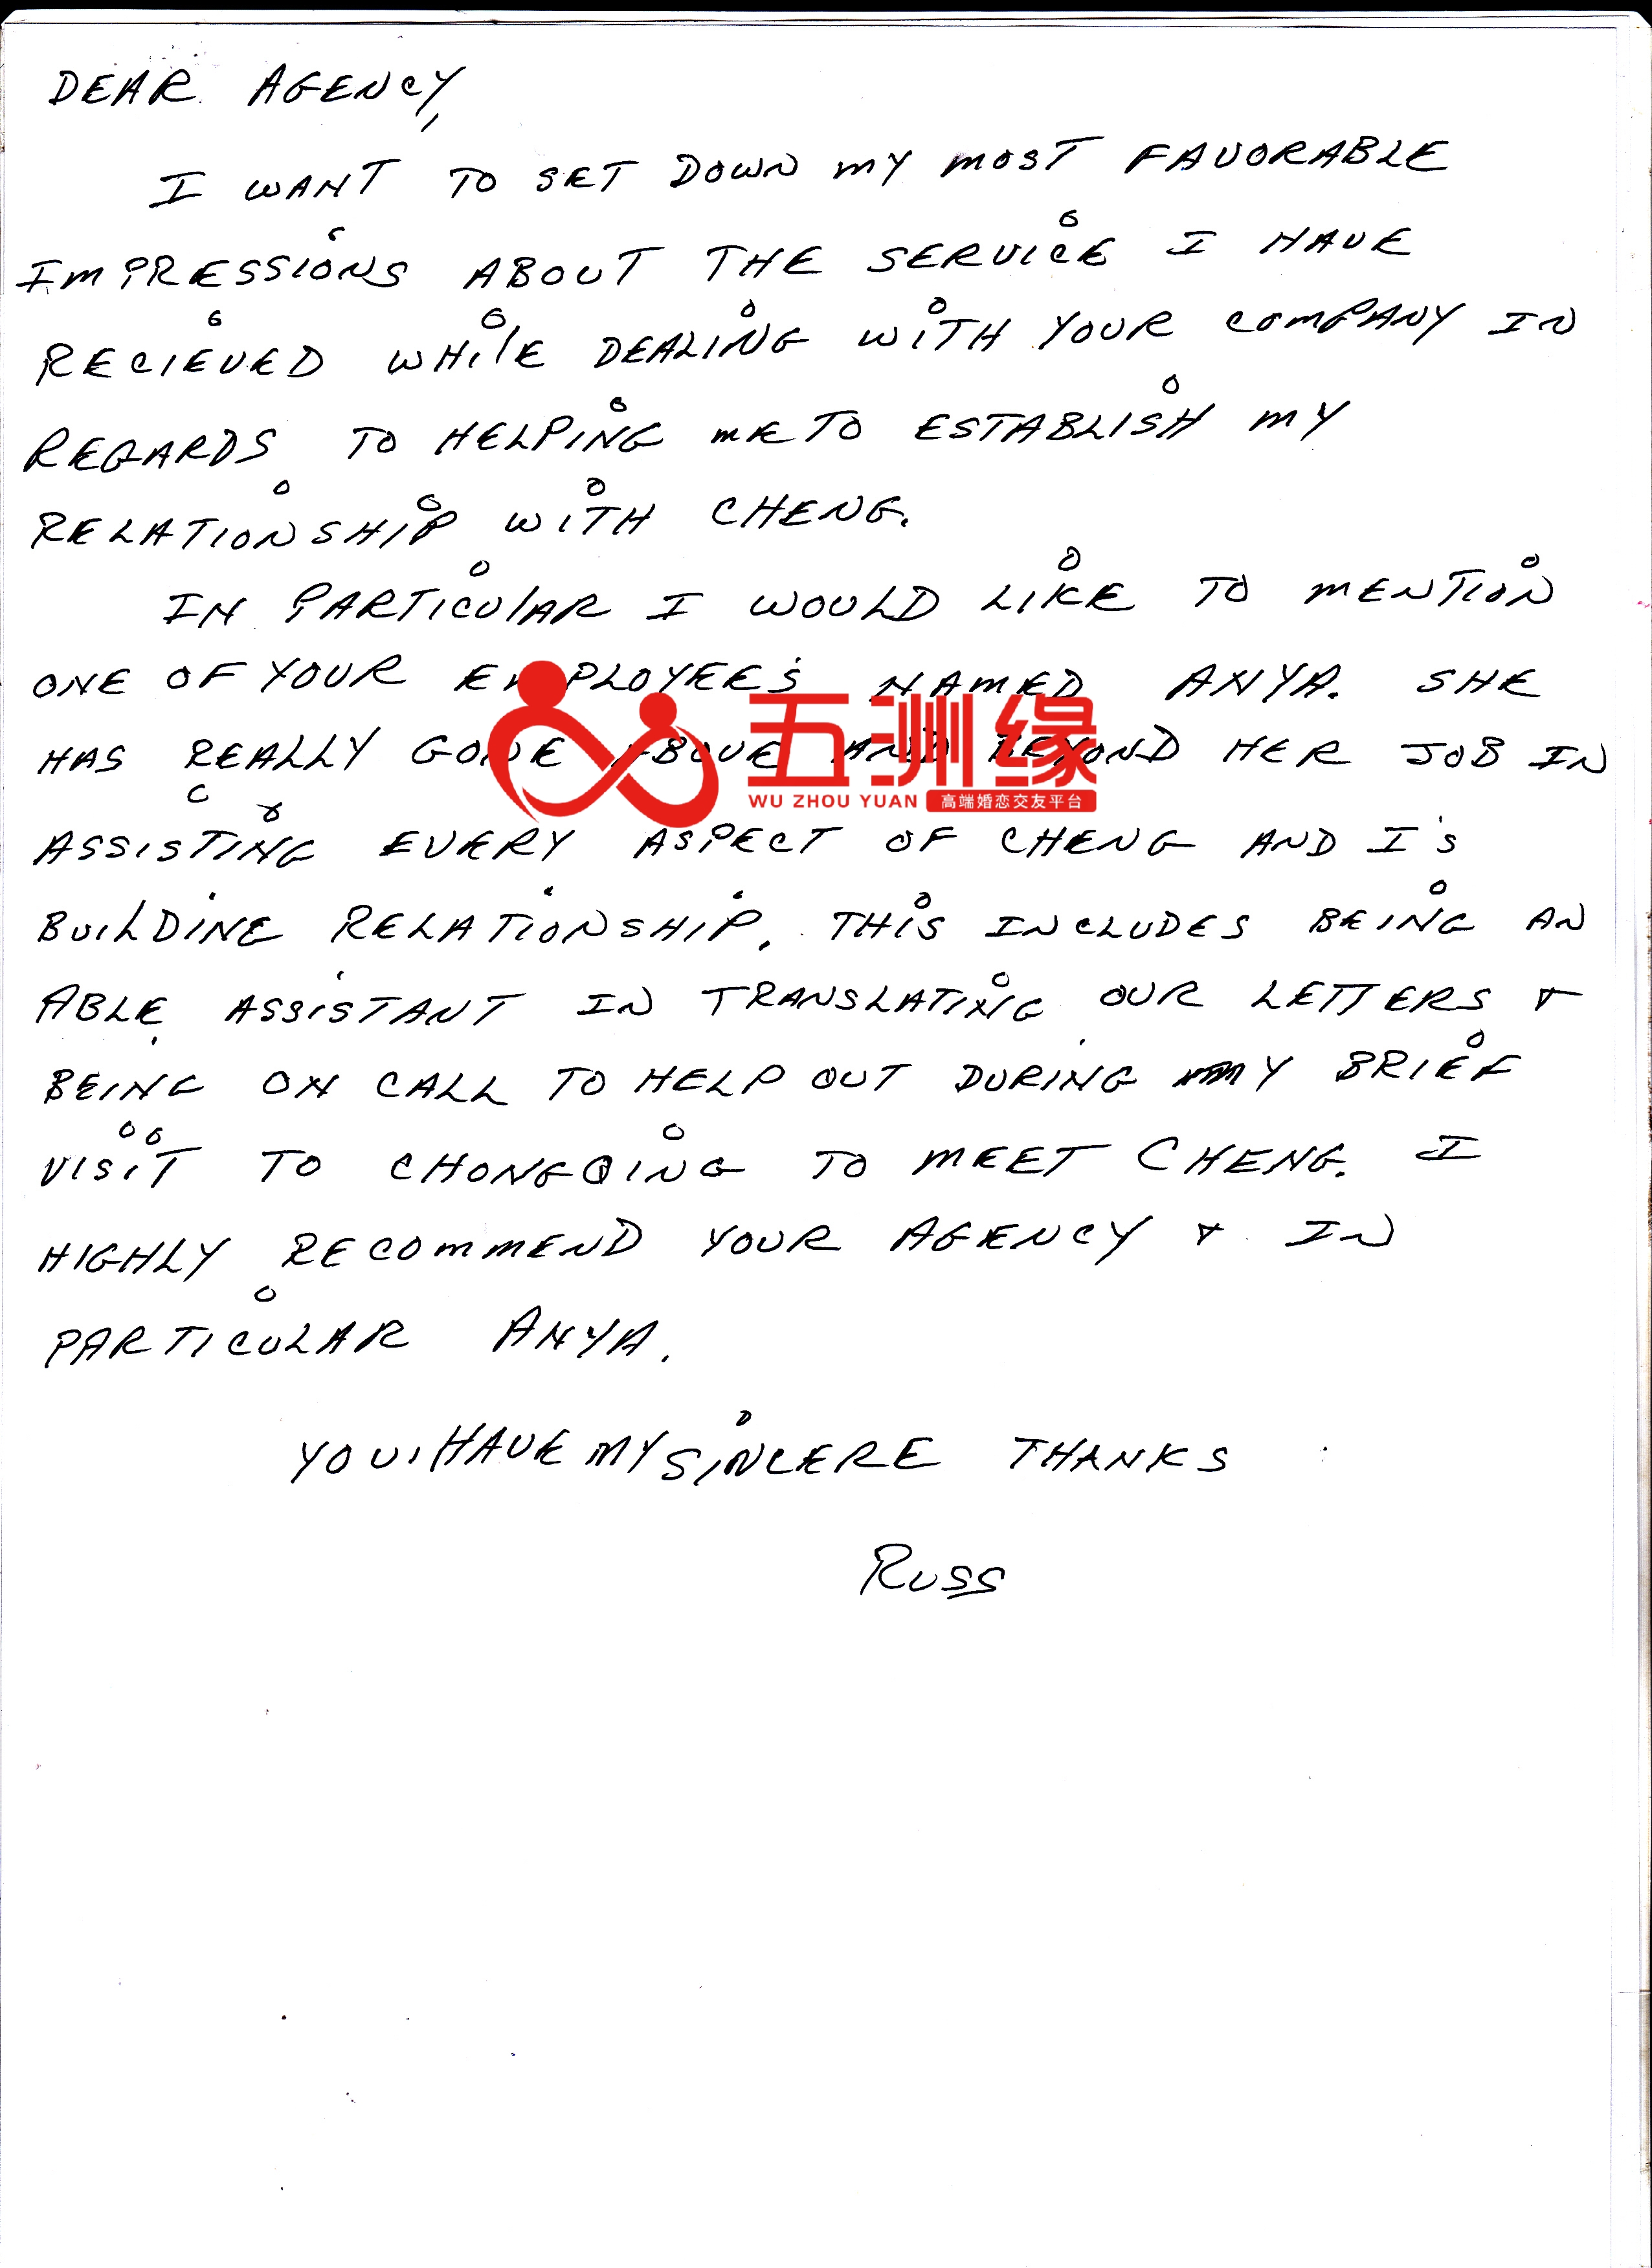 DEAR AGENCY,
I WANT TO SET DOWN MY MOST FAVORABLE
IMPRESSIONS ABOUT THE SERVICE I HAVE
RECIEVED WHILE DEALING WITH YOUR COMPANY IN
REGARDS TO HELPING ME TO ESTABLISH MY
RELATIONSHIP WITH CHENG.
IN PARTICULAR I WOULD LIKE TO MENTION
ONE OF YOUR EMPLOYEE'S NAMED ANYA. SHE
HAS REALLY GONE ABOVE AND BEYOND HER JOB IN
五洲缘
WU ZHOU YUAN 高端婚恋交友平台
ASSISTING EVERY ASPECT OF CHENG AND I'S
BUILDING RELATIONSHIP. THIS INCLUDES BEING AN
ABLE ASSISTANT IN TRANSLATING OUR LETTERS &
BEING ON CALL TO HELP OUT DURING MY BRIEF
VISIT TO CHONGQING TO MEET CHENG. I
HIGHLY RECOMMEND YOUR AGENCY & IN
PARTICULAR ANYA.
YOU HAVE MY SINCERE THANKS
RUSS